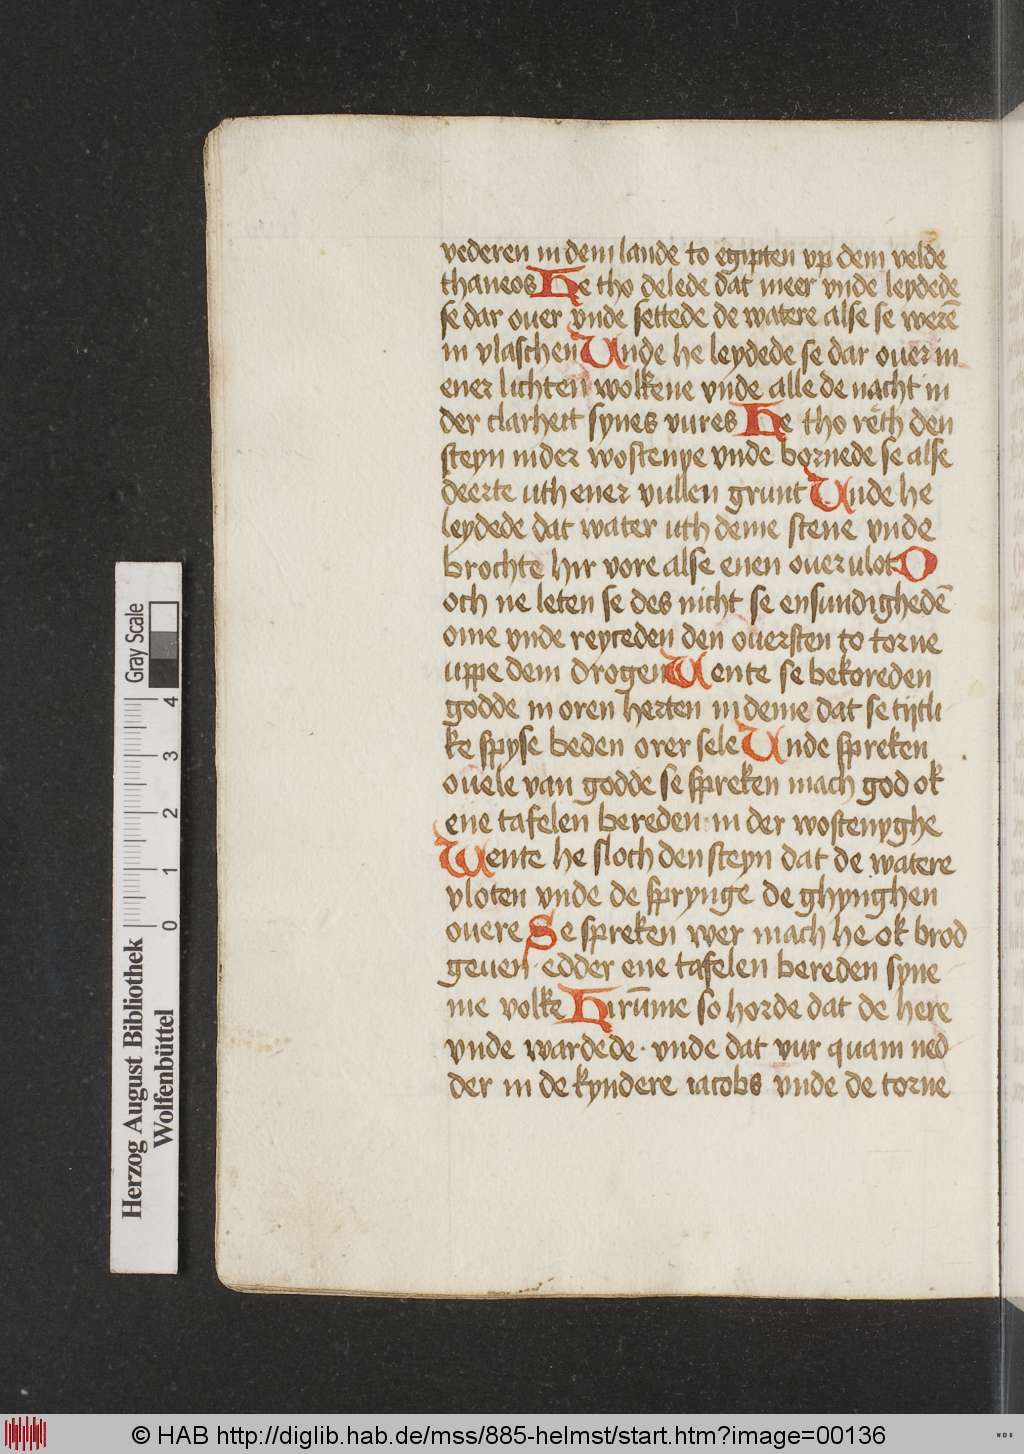 vederen in dem lande to egipten vp dem velde
thaneos He tho delede dat meer vnde leydede
se dar ouer vnde settede de watere alse se werē
in vlaschen Unde he leydede se dar ouer in
ener lichten wolkene vnde alle de nacht in
der clarheit synes vures He tho reth den
steyn in der wostenye vnde bornede se alse
deerte uth ener vullen grunt Unde he
leydede dat water uth deme stene vnde
brochte hir vore alse enen ouer vlot O
och ne leten se des nicht se ensundighedē
ome vnde reyceden den ouersten to torne
uppe dem drogen Wente se bekoreden
godde in oren herten in deme dat se tijtli
ke spyse beden orer sele Unde spreken
ouele van godde se spreken mach god ok
ene tafelen bereden in der wostenyghe
Wente he sloch den steyn dat de watere
vloten vnde de sprynge de ghynghen
ouere Se spreken wer mach he ok brod
geuen edder ene tafelen bereden syne
me volke Hirūme so horde dat de here
vnde wardede · vnde dat vur quam ned
der in de kyndere iacobs vnde de torne
Herzog August Bibliothek
Wolfenbüttel
0 1 2 3 4
Gray Scale
© HAB http://diglib.hab.de/mss/885-helmst/start.htm?image=00136